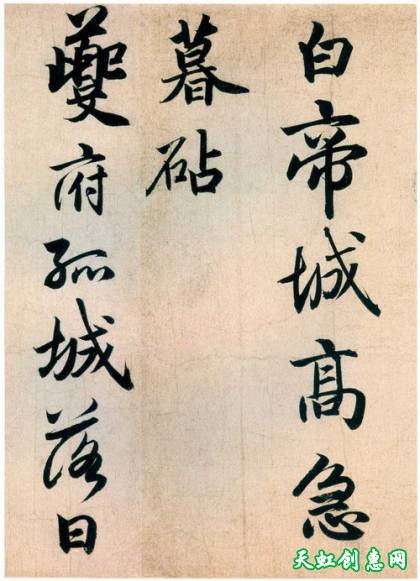 白帝城高急
暮砧
夔府孤城落日
天虹创惠网